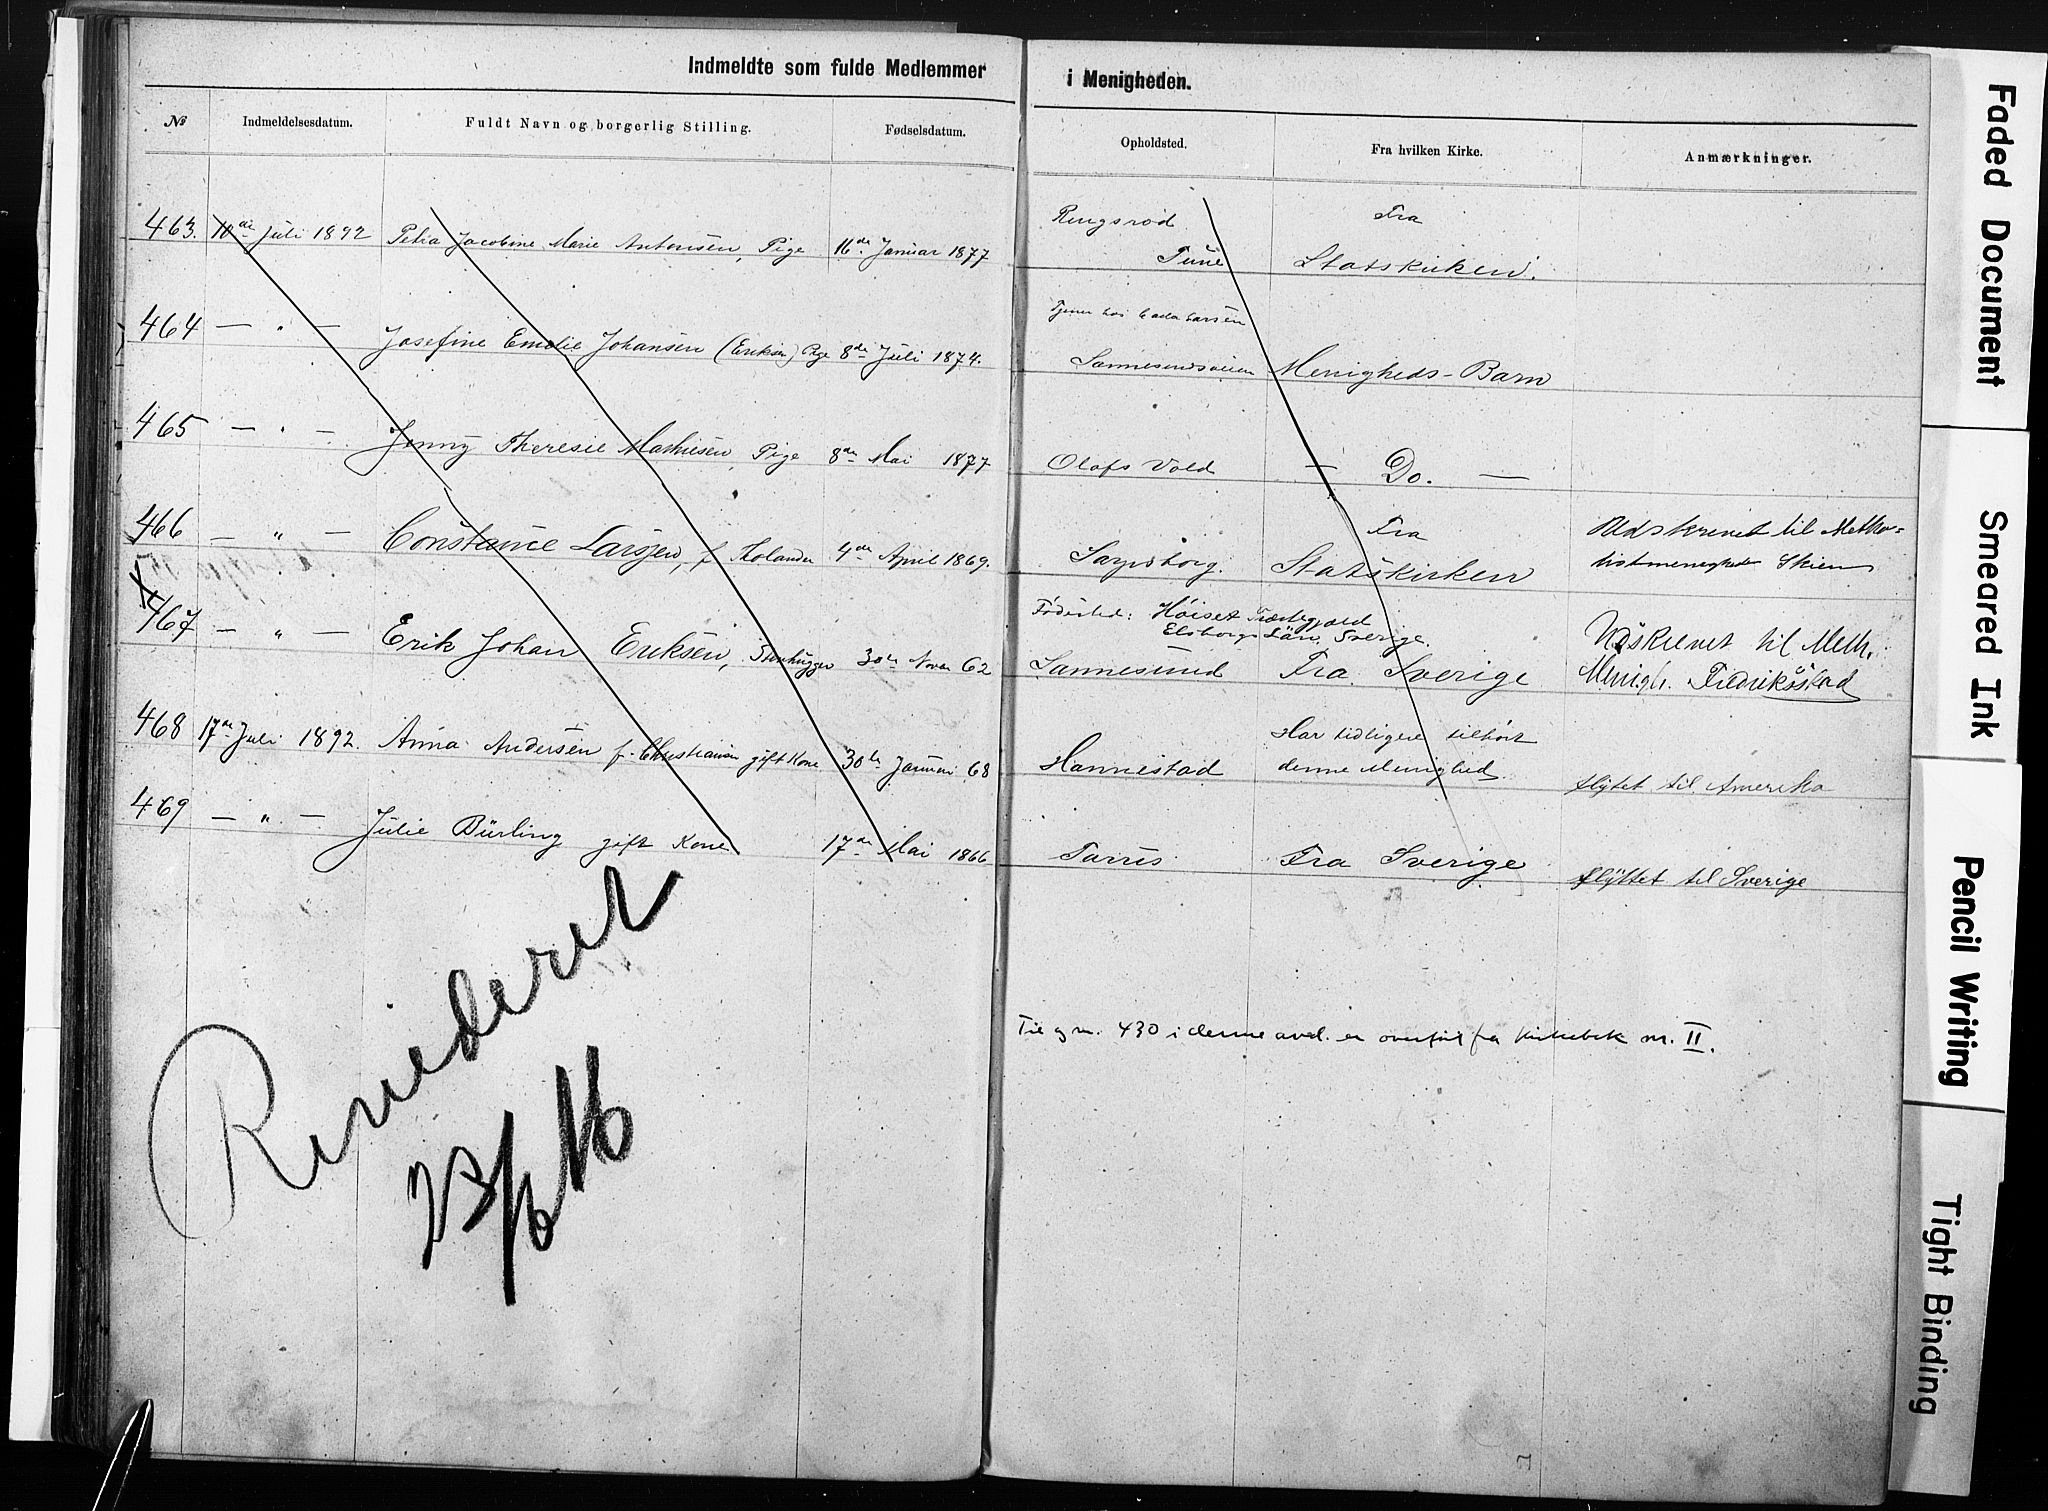 Indmeldte som fulde Medlemmer i Menigheden.
No Indmeldelsesdatum. Fuldt Navn og borgerlig Stilling. Fødselsdatum. Opholdsted. Fra hvilken Kirke. Anmærkninger.
Ringsrød Fra
463. 10de Juli 1892 Petra Jacobine Marie Antonsen, Pige 16de Januar 1877 Tune Statskirken.
Tjener hos Larsen
464 — " — Josefine Emelie Johansen (Eriksen) Pige 8de Juli 1874. Sannesundsveien Menigheds-Barn
465 — " — Jenny Theresie Mathisen, Pige 8de Mai 1877 Olafs Vold — Do. —
Fra Udskrevet til Metho=
466 — " — Constance Larsen, f. Holander 4de April 1869. Sarpsborg. Statskirken distmenighed Skien
Fødested: Høiset Tractegaard
Elsborgs Län, Sverige. Udskrevet til Meth.
467 — " — Erik Johan Eriksen, Stenhugger 30te Novem 62 Sannesund Fra Sverige Menigh. Fredriksstad
Har tidligere tilhørt
468 17de Juli 1892. Anna Andersen f. Christiansen gift Kone 30te Januari 68 Hannestad denne Menighed. flytet til Amerika
469 — " — Julie Bürling gift Kone 17de Mai 1866 Fra Sverige flyttet til Sverige
Til og m. 430 i denne avd. er overført fra Kirkebok nr. II.
Revideret
23/6 16
Faded Document
Smeared Ink
Pencil Writing
Tight Binding